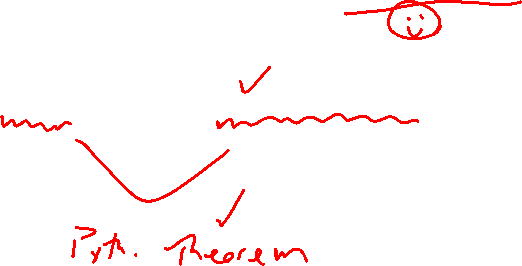 Pyth. Theorem